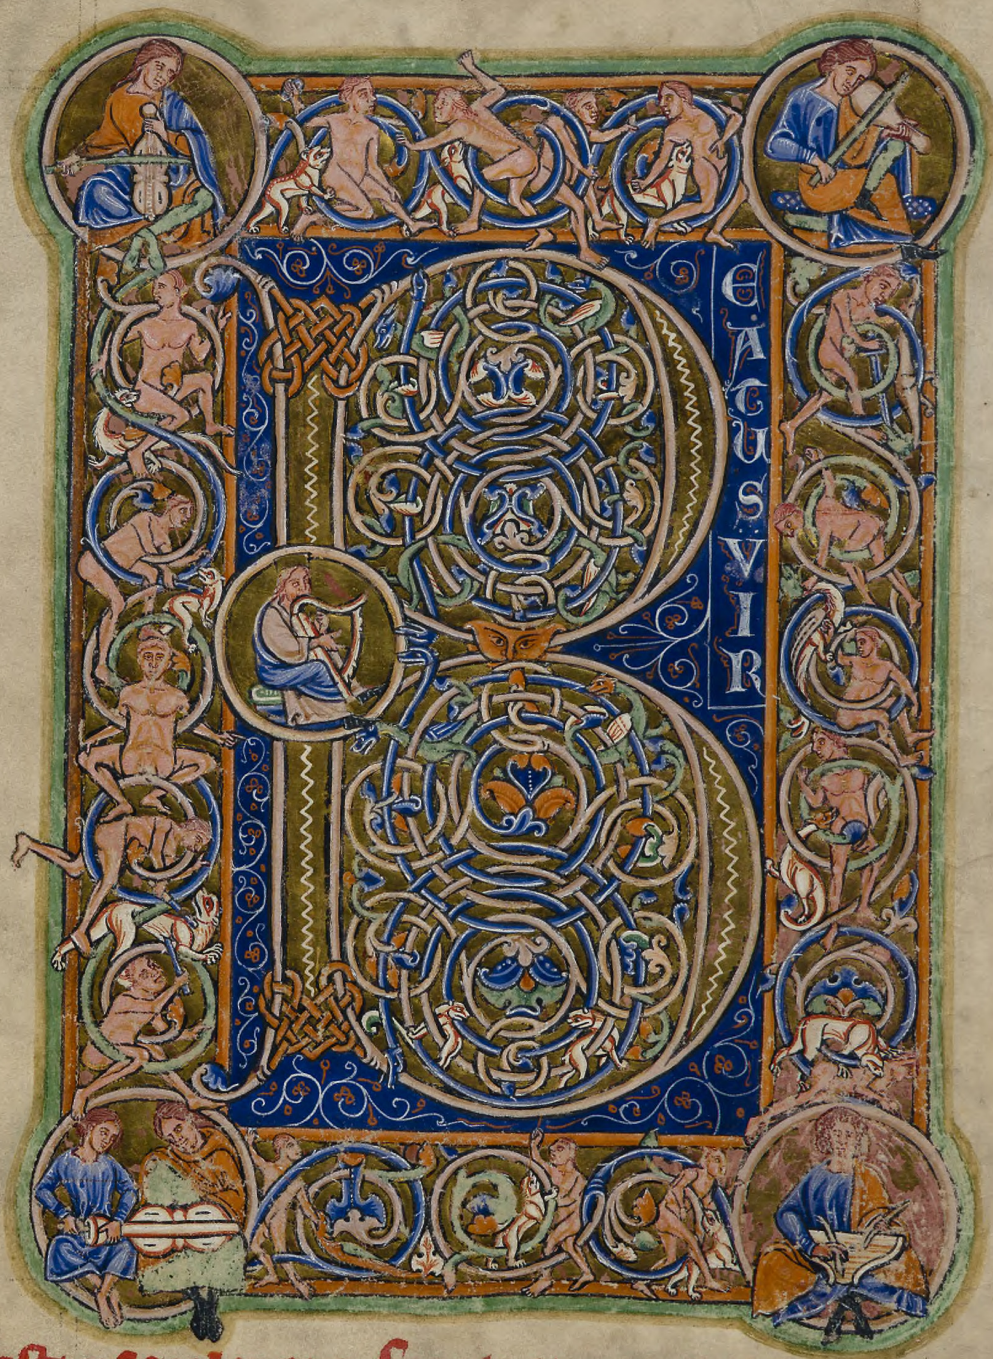 BEATUS VIR